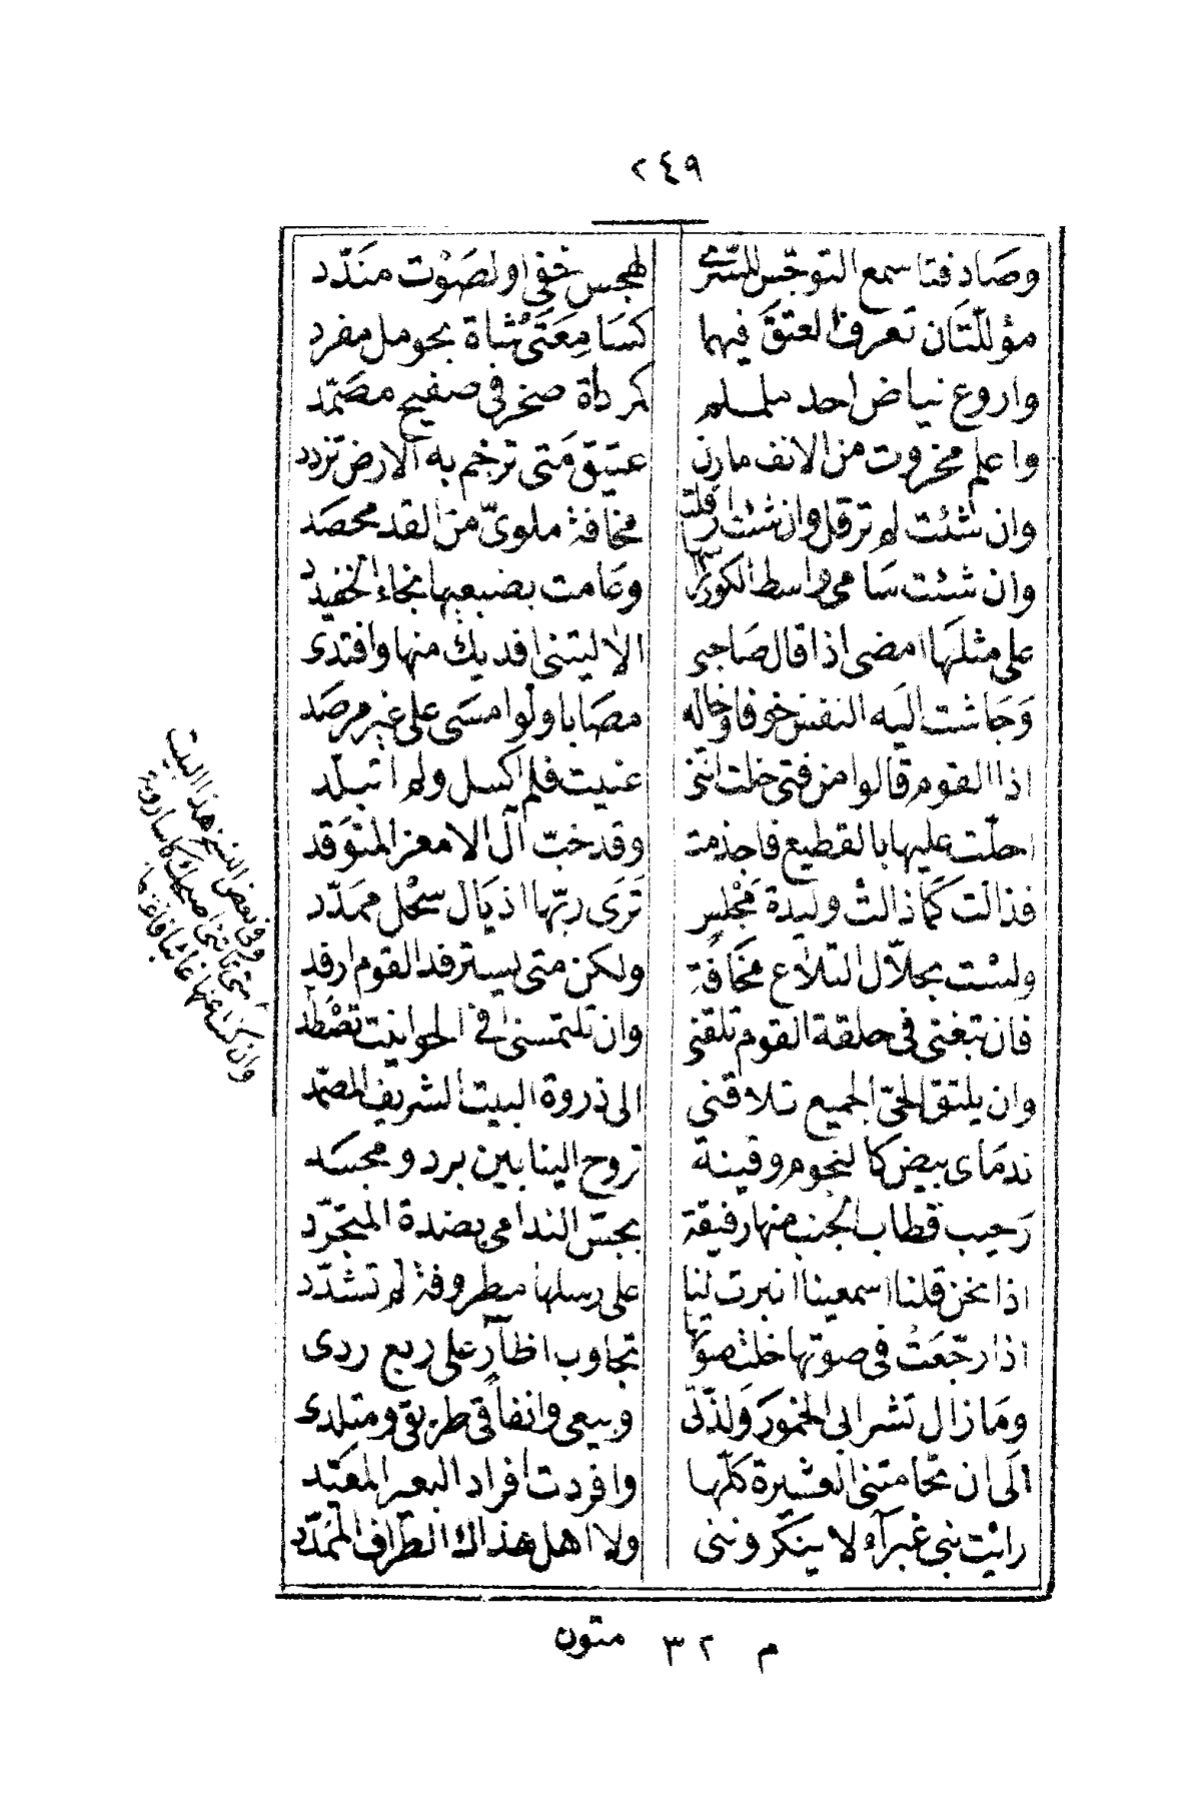 ٢٤٩
وصادقتا سمع التوجّس للسّرى لهجس خفي او لصَوْت مندّد
مؤلّلتان تعرف العتقَ فيهما كسَامِعَتَىْ شاة بحومل مفرد
واروع نباض احد ململم كمرداة صخر في صفيح مصمّد
واعلم مخروت من الانف مارن عتيق مَتى ترجم به الارض تزدد
وان شئت لم ترقل وان شئت ارقلت مخافة ملوىّ من القد محصَد
وان شئت سَامى واسط الكور راسها وعَامت بضبعيها نجاء الخفيدد
على مثلهَا امضى اذا قال صَاحبى الا ليتنى افديك منها وافتدى
وَجَاشت اليَه النفس خوفا وخاله مصَابا ولو امسَى على غير مرصَد
اذا القوم قالوا من فتى خلت اننى عنيت فلم اكسل ولم اتبلّد
احلت عليها بالقطيع فاجذمت وقد خبّ آل الامعز المتوَقد
فذالت كمَا ذالت وليدة مَجْلس تَرَى ربّها اذيَال سحْل ممَدّد
ولسْت بحلاّل التلاع مخَافَة ولكن متى يسترفد القوم ارفد
فان تبغنى فى حلقة القوم تلقنى وان تلتمسنى في الحوانيت تصْطد
وان يلتق الحىّ الجميع تلاقنى الى ذروة البيت الشريف المصمّد
ندمَاى بيض كالنجوم وقينة تروح الينا بين برد ومجسَد
رَحيب قطاب الجنب منها رفيقة بجسّ الندامى بضدة المتجَرّد
اذا نحن قلنا اسمعينا انبرت لنا على رسلها مطروفة لم تشدّد
اذا رجّعَتْ فى صوتها خلت صوتها تجاوب اظآر على ربع ردى
ومَا زال تشرابى الخمورَ ولذّتى وبيعى وانفاقى طريفى ومتلدى
الَى ان تحامتنى العشيرة كلّها وافردت افراد البعير المعَبّد
رايْت بنى غبرآء لا ينكرونَنى ولا اهل هذاك الطّراف المُمدّد
وفى بعض النسخ هذا البيت
متى تاتنى اصبحك كاسا روية
وان كنت عنها غانيا فاغن
م ٣٢ متون